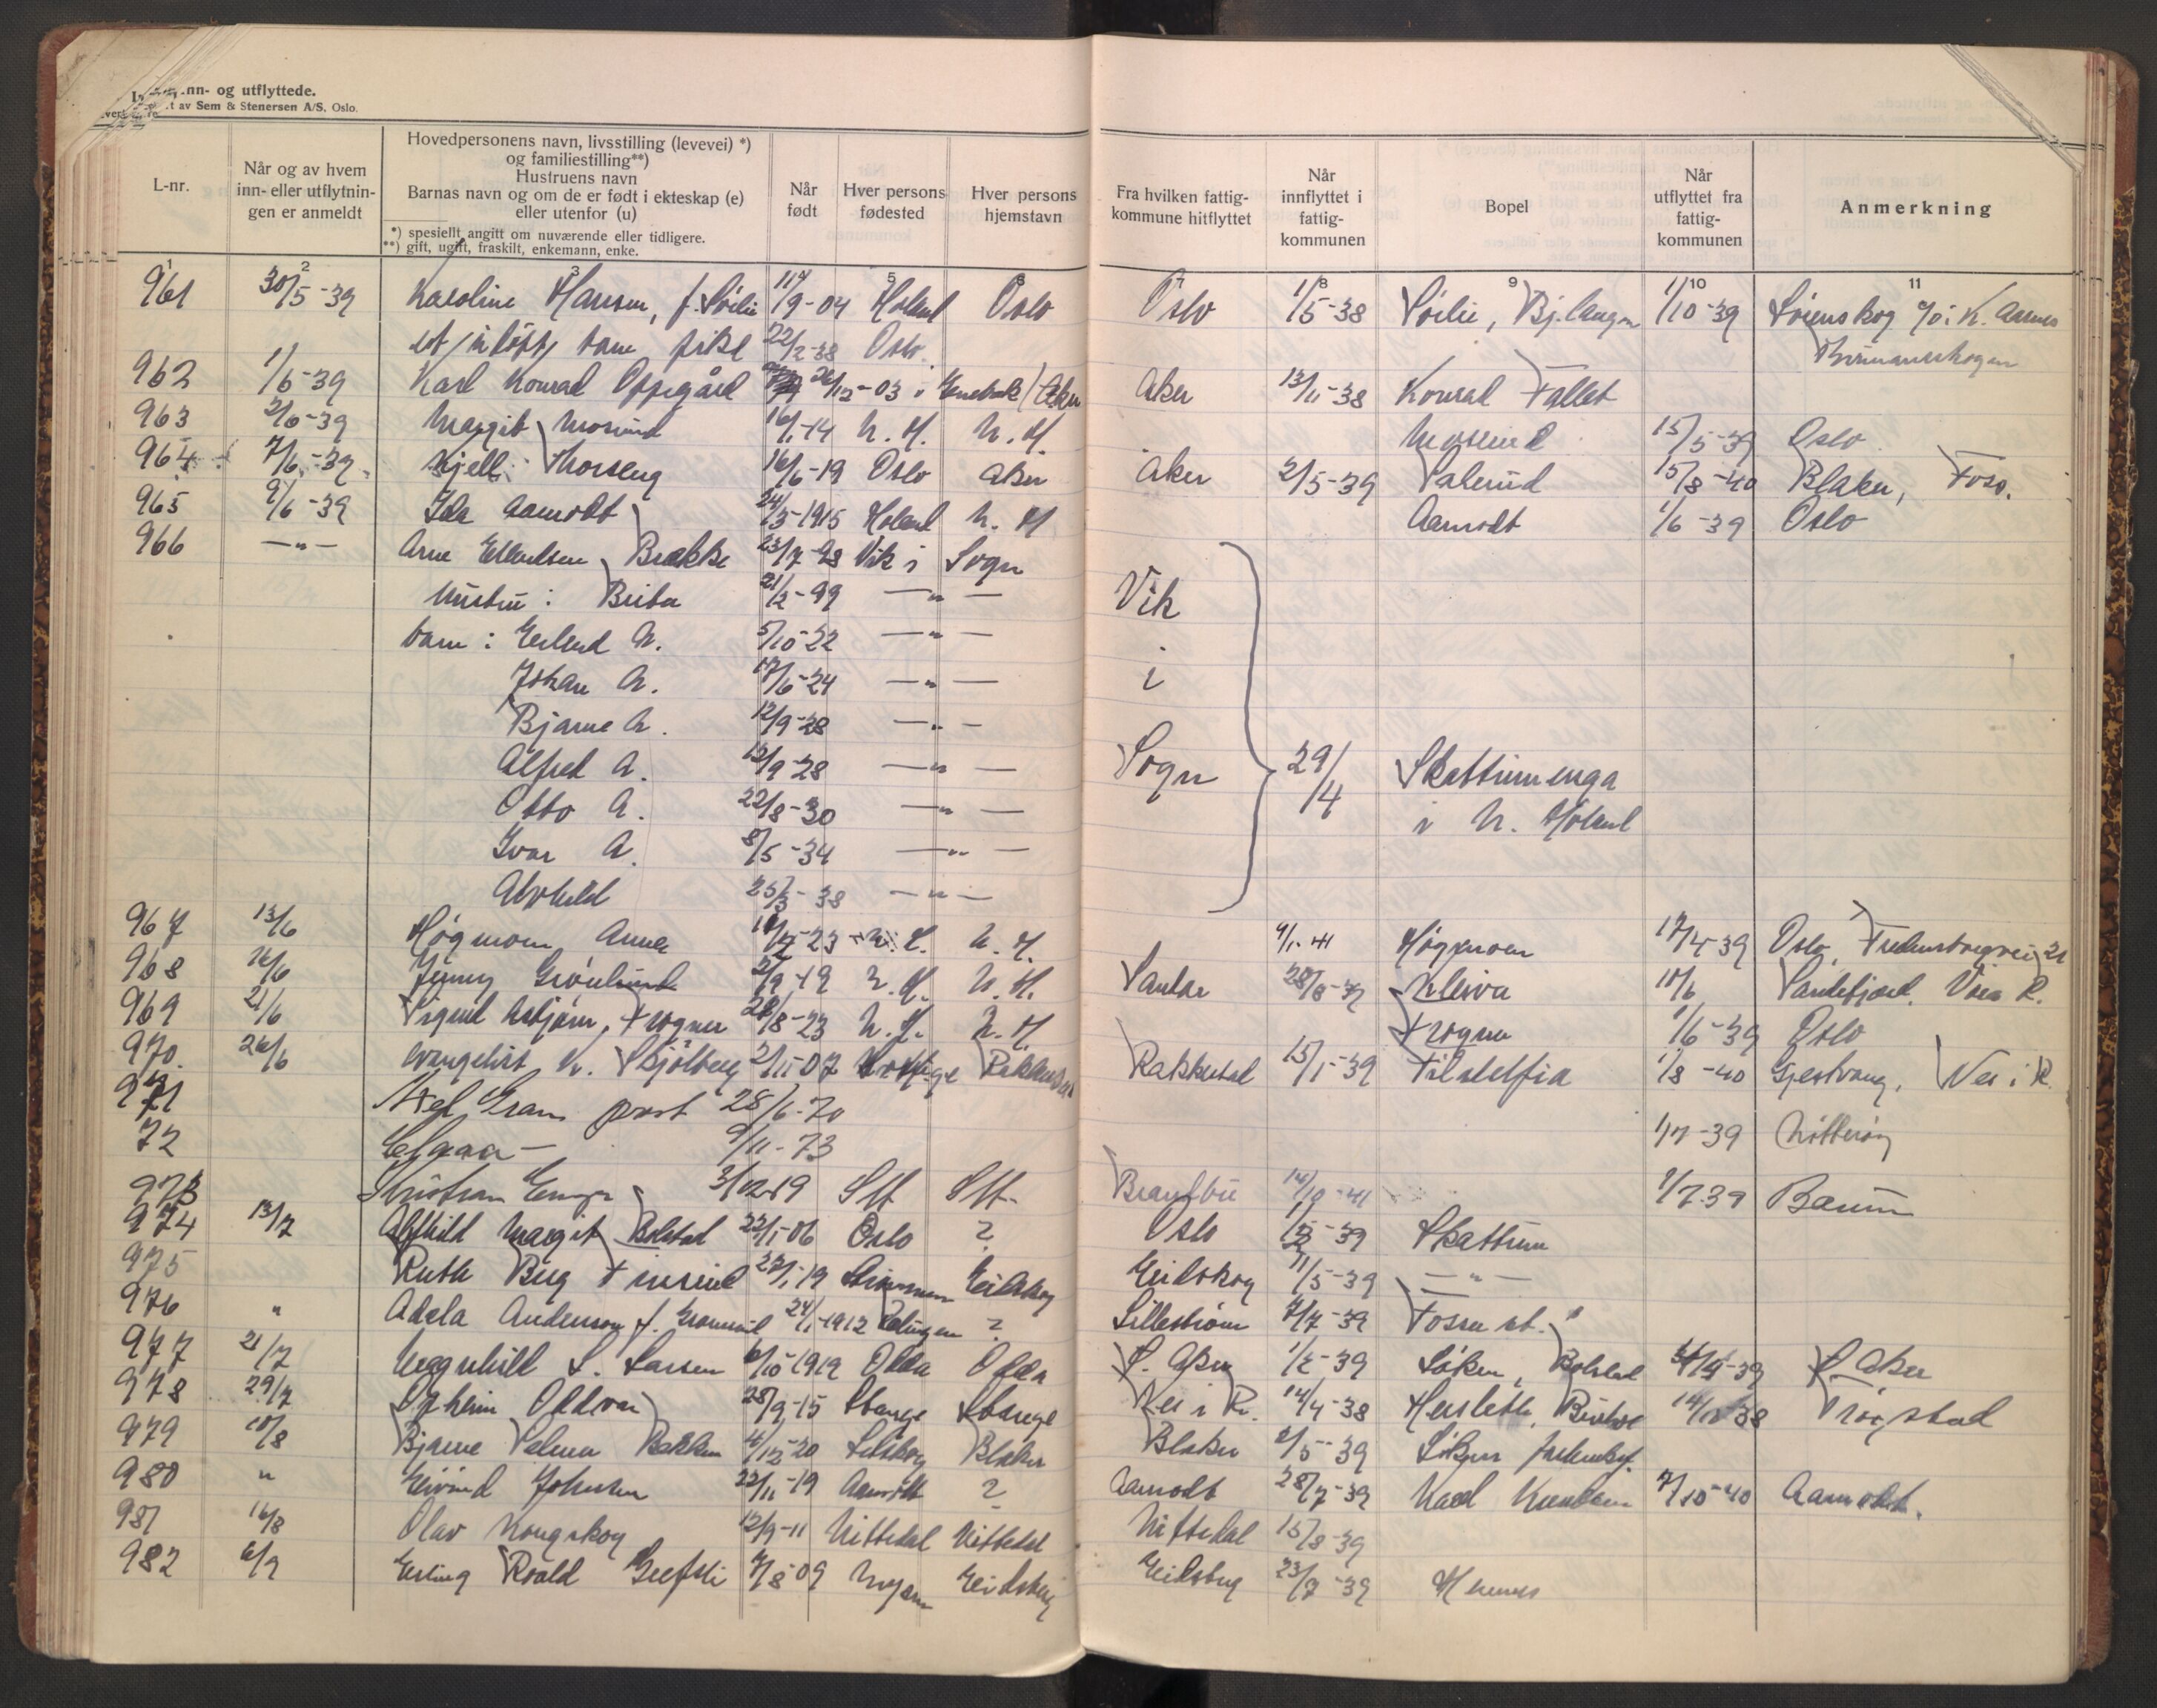 nn- og utflyttede.
t av Sem & Stenersen A/S, Oslo.
L-nr.
Når og av hvem inn- eller utflytnin- gen er anmeldt
Hovedpersonens navn, livsstilling (levevei) *) og familiestilling**)
Hustruens navn
Barnas navn og om de er født i ekteskap (e) eller utenfor (u)
*) spesiellt angitt om nuværende eller tidligere.
**) gift, ugift, fraskilt, enkemann, enke.
Når født
Hver persons fødested
Hver persons hjemstavn
Fra hvilken fattig- kommune hitflyttet
Når innflyttet i fattig- kommunen
Bopel
Når utflyttet fra fattig- kommunen
Anmerkning
1 2 3 5 6 7 8 9 10 11
961 30/5-39 Karoline Hansen, f. Sørlie 11/9-04 Høland Oslo Oslo 1/5-38 Sørlie, Bj.langen 1/10-39
barn pike 22/2-38 Oslo
962 1/6-39 Karl Konrad Oppegård 26/12-03 i Enebakk / Aker Aker 13/11-38 Konrad Fallet
963 2/6-39 Margit Mosrud 16/1-14 N. H. N. H. Mosrud 15/5-39 Oslo
964 7/6-39 Kjell Thorseng 16/6-19 Oslo Aker Aker 2/5-39 Valerud 15/8-40 Blaker, Foss.
965 9/6-39 Ida Aamodt 24/3-1915 Høland N. H Aamodt 1/6-39 Oslo
966 —„— Arne Erlendsen Brekke 23/7-98 Vik i Sogn
Hustru: Brita 21/2-99 —„—
barn: Erlend A. 5/10-22 —„—
Johan A. 17/6-24 —„—
Bjarne A. 12/9-28 —„—
Alfred A. 12/9-28 —„—
Otto A. 22/8-30 —„—
Ivar A. 8/5-34 —„—
Alvhild 25/3-38 —„—
Vik
i
Sogn 29/4 Skattumenga
i N. Høland
967 13/6 Høgmoen Anna N. H. 9/1-41 Høgmoen 17/4-39 Oslo,
968 16/6 Jenny Grønlund 2/9-19 N. H. N. H. Sandar 28/8-39 Kleiva 10/6 Sandefjord,
969 21/6 Sigurd Asbjørn, Frogner 28/8-23 N. H. N. H. Frogner 1/6-39 Oslo
970 26/6 evangelist K. Skjølberg 2/11-07 Rakkestad Rakkestad 15/1-39 Filadelfia 1/8-40 Gjestvang, Nes i R.
971 Axel Gran prest 28/6-70
72 9/11-73 1/7-39 Nøtterøy
973 Kristian 3/12-19 Sth Sth Brandbu 14/10-41 1/7-39 Bærum
974 13/7 Alfhild Margit Bolstad 22/1-06 Oslo ? Oslo 39 Skattum
975 Ruth 27/1-19 Eidskog Eidskog 11/5-39 —„—
976 „ Adela Anderson f. 24/1-1912 ? Lillestrøm 7/7-39 Fosser st.
977 21/7 Ragnhild S. Larsen 6/10-1919 Odda Odda Ø. Aker 1/2-39 Løken, Bolstad Ø. Aker
978 29/7 Opheim Oddvar 28/9-15 Stange Stange Nes i R. 14/4-38 Hersleth, 14/12-38 Trøgstad
979 10/8 Bjarne Valmer Bakken 4/12-20 Blaker Blaker 2/5-39 Løken
980 „ Eivind Johnsen 22/11-19 Aamodt ? Aamodt 28/7-39 Karl Knudsen 7/10-40 Aamodt.
981 16/8 Olav Kongskog 12/9-11 Nittedal Nittedal Nittedal 15/8-39
982 6/9 Erling Roald Grefsli 7/8-09 Mysen Eidsberg Eidsberg 23/7-39 Hemnes